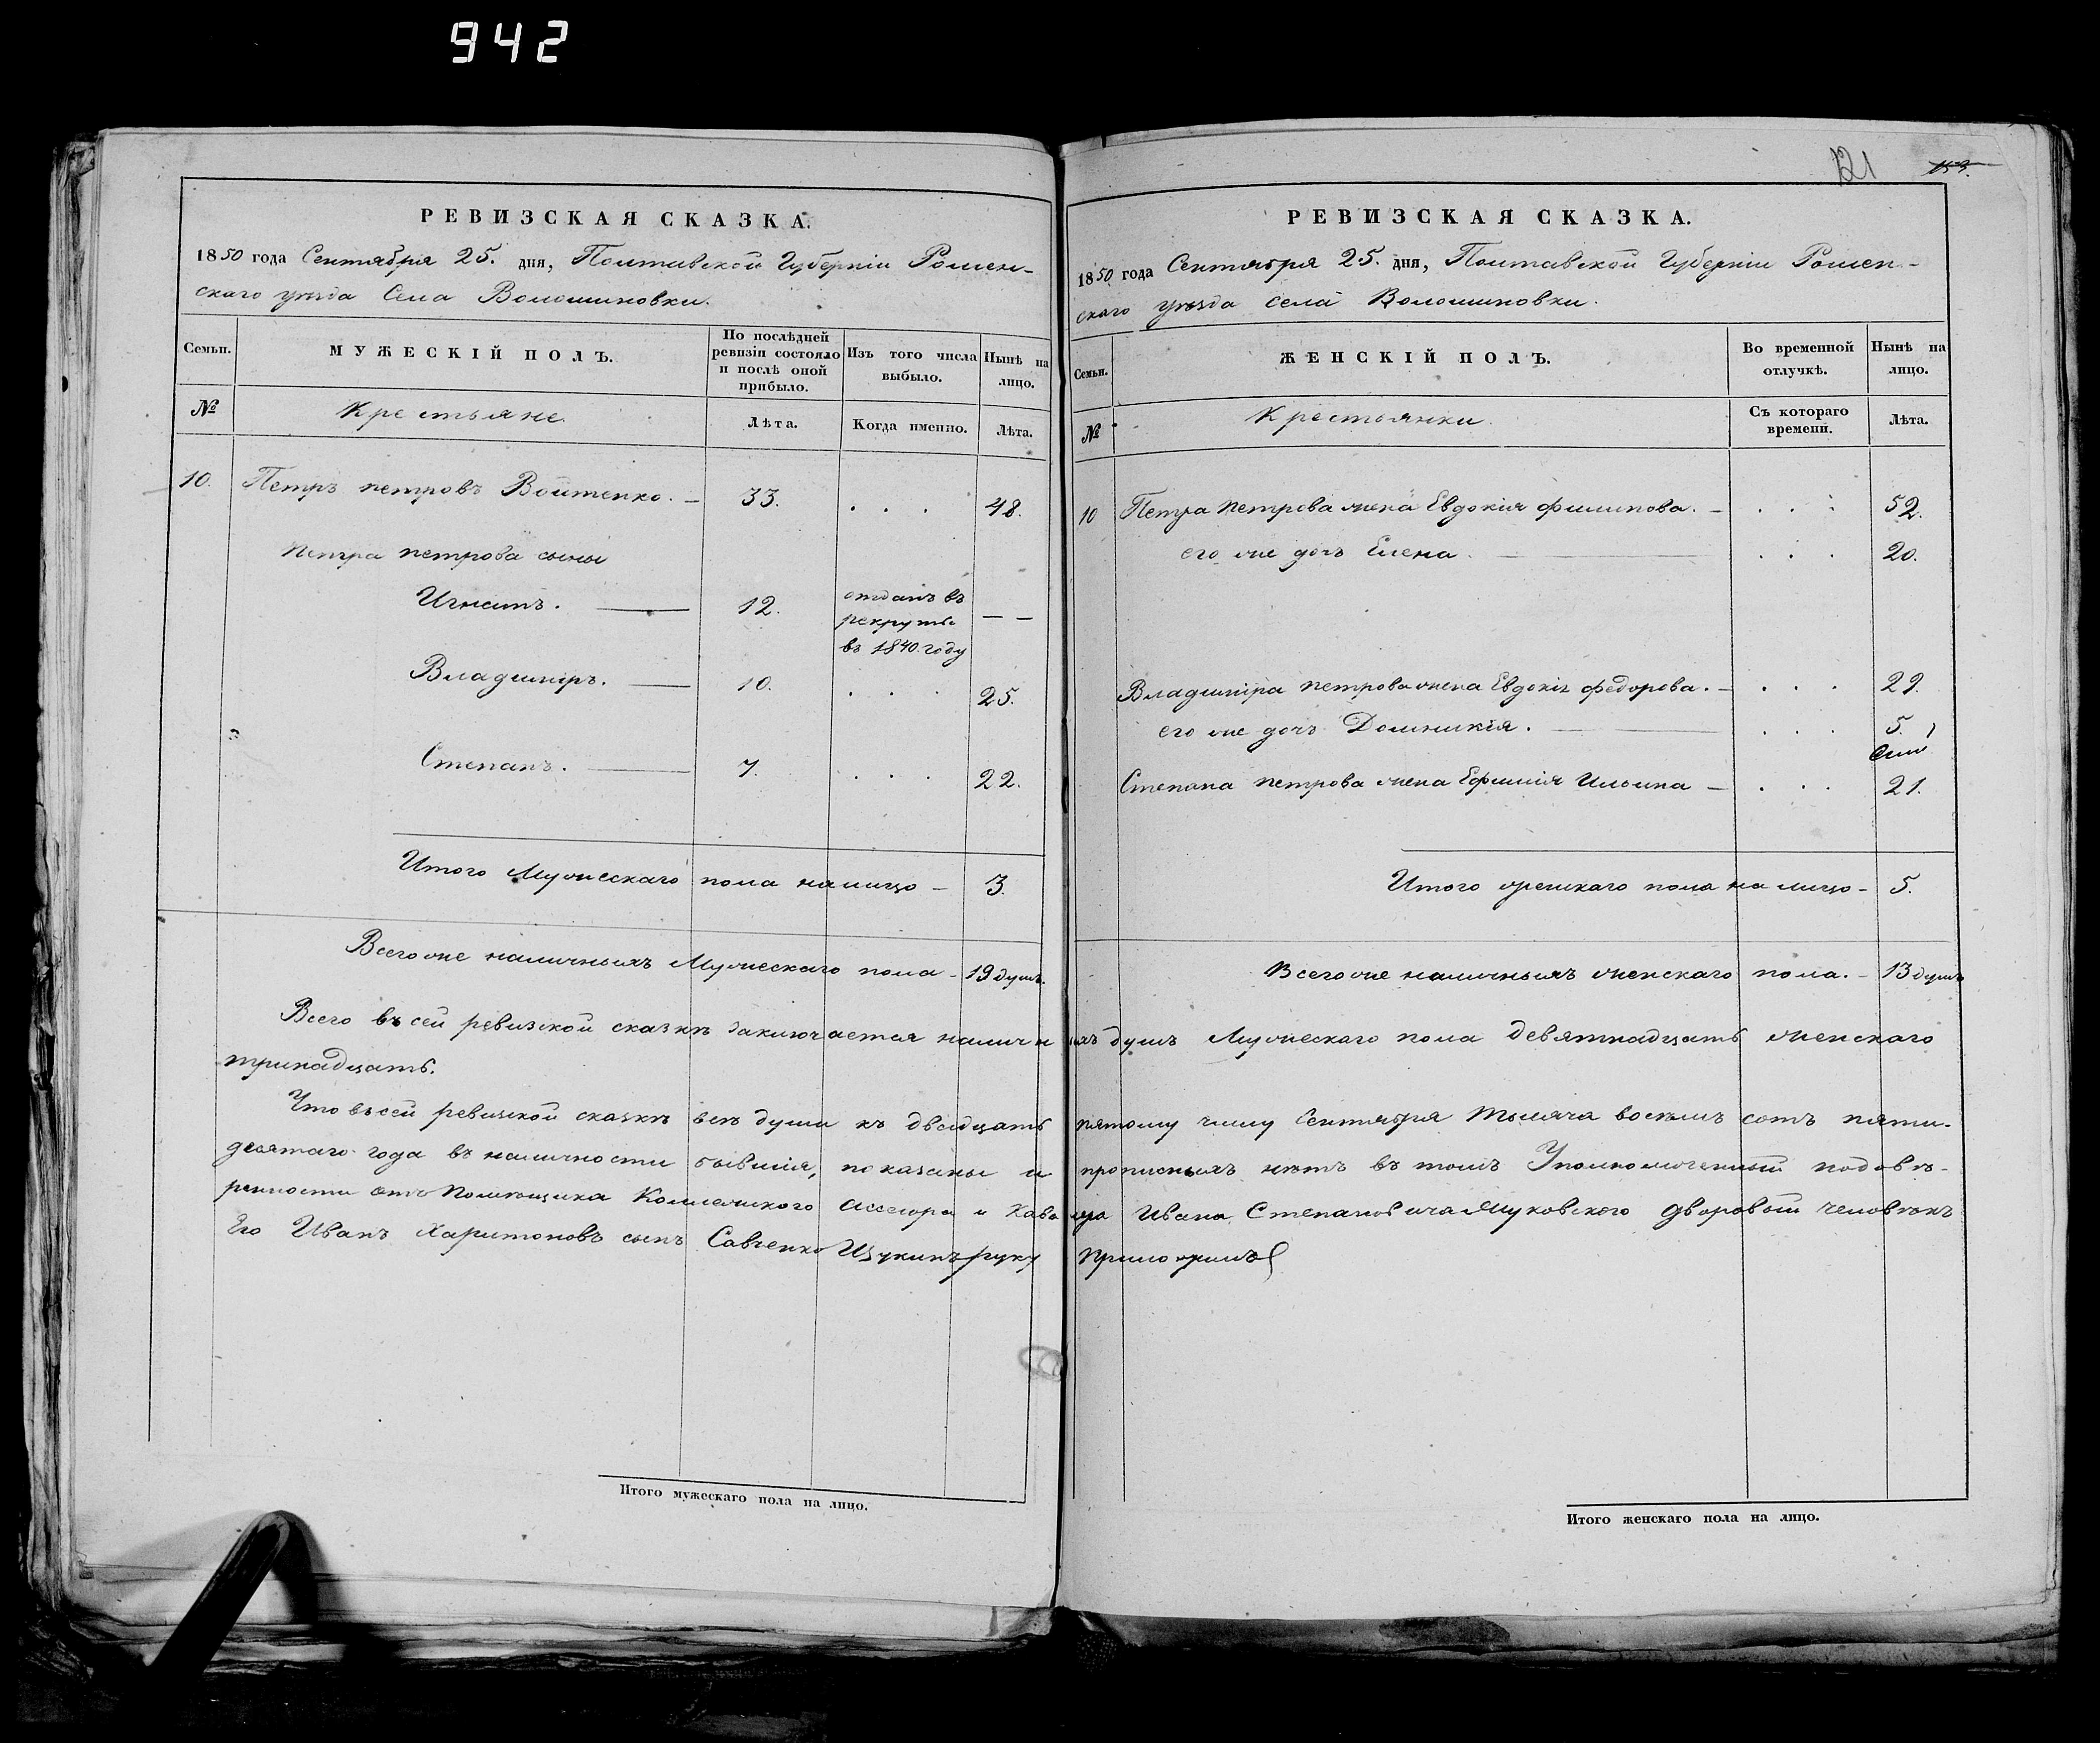 942
РЕВИЗСКАЯ СКАЗКА.
1850 года Сентября 25. дня, Полтавской Губерніи Ромен-
скаго уѣзда Села Волошиновки.
Семьи.
МУЖЕСКІЙ ПОЛЪ.
По послѣдней
ревизіи состояло
и послѣ оной
прибыло.
Изъ того числа
выбыло.
Нынѣ на
лицо.
№
Крестьяне
Лѣта.
Когда именно.
Лѣта.
10. Петръ петровъ Войтенко. – 33. . . . 48.
Петра петрова сыны
Игнатъ. — 12. отданъ въ — —
рекруты
въ 1840 году
Владиміръ. — 10. . . . 25.
Степанъ. — 7. . . . 22.
Итого Мужескаго пола налицо – 3.
Всего же наличныхъ Мужескаго пола – 19 душъ.
121
153.
РЕВИЗСКАЯ СКАЗКА.
1850 года Сентября 25. дня, Полтавской Губерніи Ромен-
скаго уѣзда села Волошиновки.
Семьи.
ЖЕНСКІЙ ПОЛЪ.
Во временной
отлучкѣ.
Нынѣ на
лицо.
№
Крестьянки.
Съ котораго
времени.
Лѣта.
10 Петра Петрова жена Евдокія филипова. – . . . 52.
его же дочь Елена. — . . . 20.
Владиміра петрова жена Евдокія федорова. – . . . 29.
его же дочь Домникія. — . . . 5.
Степана петрова жена Ефимія Ильина – . . . 21.
Итого женскаго пола на лицо – 5.
Всего же наличныхъ женскаго пола. – 13 душъ
Всего въ сей ревизской сказкѣ заключается наличныхъ душъ Мужескаго пола девятнадцать женскаго
тринадцать.
Что въ сей ревизской сказкѣ всѣ души къ двадцать пятому числу Сентября тысяча восемь сотъ пяти-
десятаго года въ наличности бывшія, показаны и прописныхъ нѣтъ въ томъ Уполномоченный подовѣ-
ренности отъ Помѣщика Коллежского Ассесора и Кавалера Ивана Степановича Жуковского дворовый человѣкъ
Его Иванъ Харитоновъ сынъ Савченко Щукинъ руку приложилъ
Итого мужескаго пола на лицо.
Итого женскаго пола на лицо.